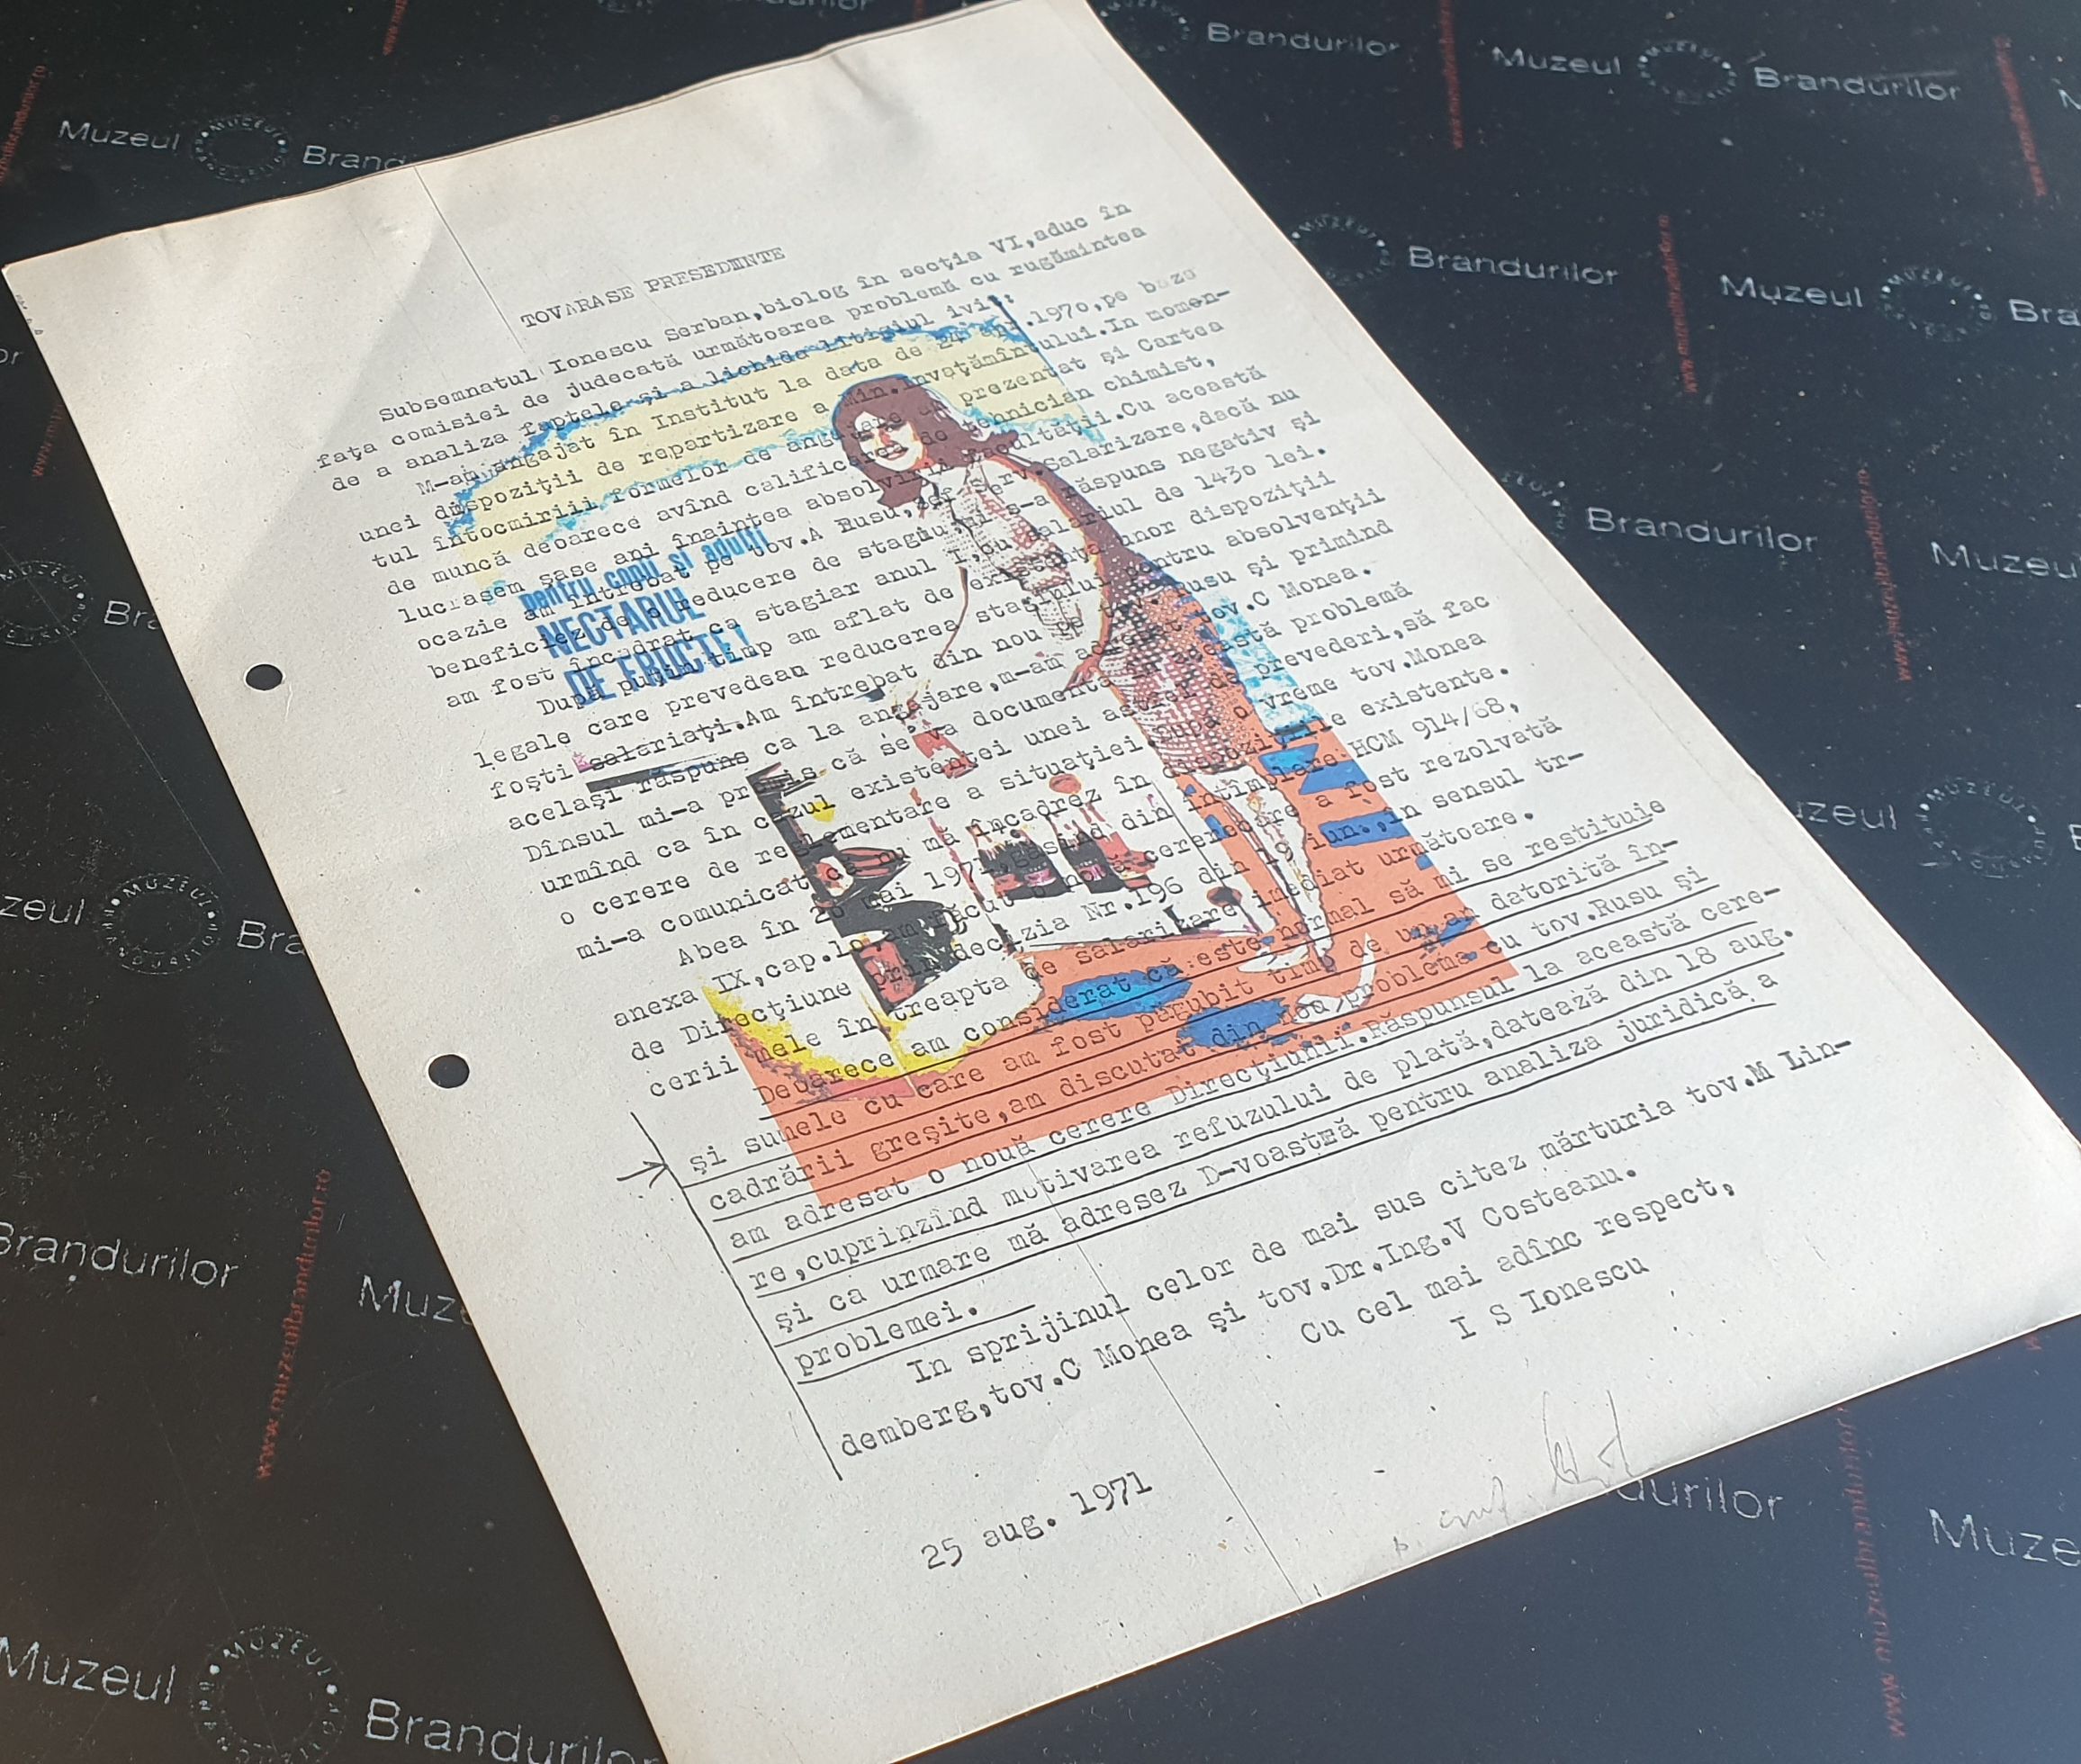 TOVARASE PRESEDMNTE
Subsemnatul Ionescu Serban,biolog în secția VI,aduc în
fața comisiei de judecată următoarea problemă cu rugămintea
de a analiza faptele și a lichida litigiul ivit:
M-am angajat în Institut la data de .1970,pe baza
unei dispoziții de repartizare a Min.Invățămîntului.In momen-
tul întocmirii formelor de angajare am prezentat și Cartea
de muncă deoarece avînd calificarea de tehnician chimist,
lucrasem șase ani înaintea absolvirii facultății.Cu această
ocazie am întrebat pe tov.A Rusu,șef Serv.Salarizare,dacă nu
beneficiez de o reducere de stagiu.Mi s-a răspuns negativ și
am fost încadrat ca stagiar anul I,cu salariul de 1430 lei.
După puțin timp am aflat de existența unor dispoziții
legale care prevedeau reducerea stagiului pentru absolvenții
foști salariați.Am întrebat din nou pe tov. Rusu și primind
același răspuns ca la angajare,m-am adresat tov.C Monea.
Dînsul mi-a promis că se va documenta în această problemă
urmînd ca în cazul existenței unei astfel de prevederi,să fac
o cerere de reglementare a situației.După o vreme tov.Monea
mi-a comunicat că nu mă încadrez în dispozițiile existente.
Abea în 20 mai 1971,găsind din întîmplare HCM 914/68,
anexa IX,cap.10,am făcut o nouă cerere care a fost rezolvată
de Direcțiune prin decizia Nr.196 din 19 iun.,în sensul tr-
cerii mele în treapta de salarizare imediat următoare.
Deoarece am considerat că este normal să mi se restituie
și sumele cu care am fost păgubit timp de un an datorită în-
cadrării greșite,am discutat din nou problema cu tov.Rusu și
am adresat o nouă cerere Direcțiunii.Răspunsul la această cere-
re,cuprinzînd motivarea refuzului de plată,datează din 18 aug.
și ca urmare mă adresez D-voastră pentru analiza juridică a
problemei.
In sprijinul celor de mai sus citez mărturia tov.M Lin-
demberg,tov.C Monea și tov.Dr.Ing.V Costeanu.
Cu cel mai adînc respect,
I S Ionescu
25 aug. 1971
pentru copii și adulți
NECTARUL
DE FRUCTE!
Muzeul Brandurilor
www.muzeulbrandurilor.ro